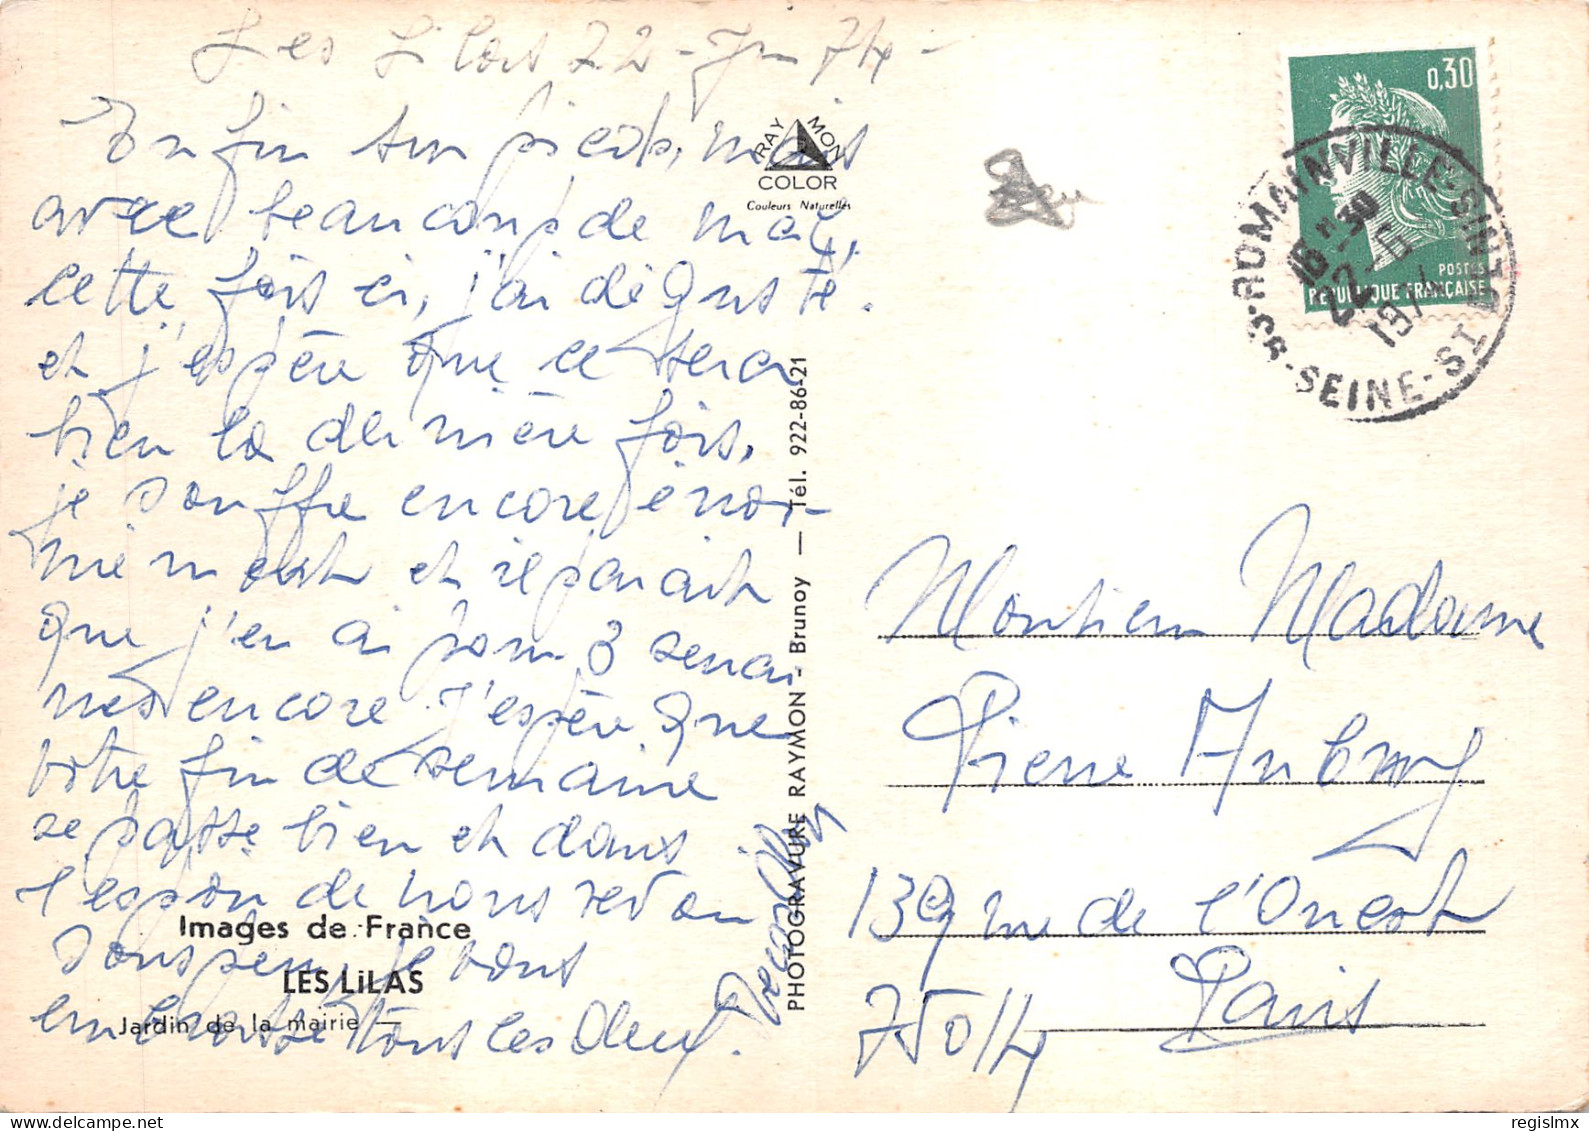 Les Lilas 22 - Jn 74 -
Enfin sur pieds, mais
avec beaucoup de mal,
cette fois ci, j'ai dégusté.
et j'espère que ce sera
bien la dernière fois,
je souffre encore énor-
mement et il parait
que j'en ai pour 3 semai
nes encore J'espère que
votre fin de semaine
se passe bien et dans
l'espoir de nous revoir
sous peu, je vous
embrasse tous les deux.
RAYMON
COLOR
Couleurs Naturelles
Images de France
LES LiLAS
Jardin de la mairie
PHOTOGRAVURE RAYMON - Brunoy — Tél. 922-86-21
0,30
POSTES
REPUBLIQUE FRANÇAISE
ROMAINVILLE
16 H 30
22 - 6
197
SEINE-ST
Monsieur Madame
Pierre Aubry
139 rue de l'Ouest
Paris
75014
regislmx